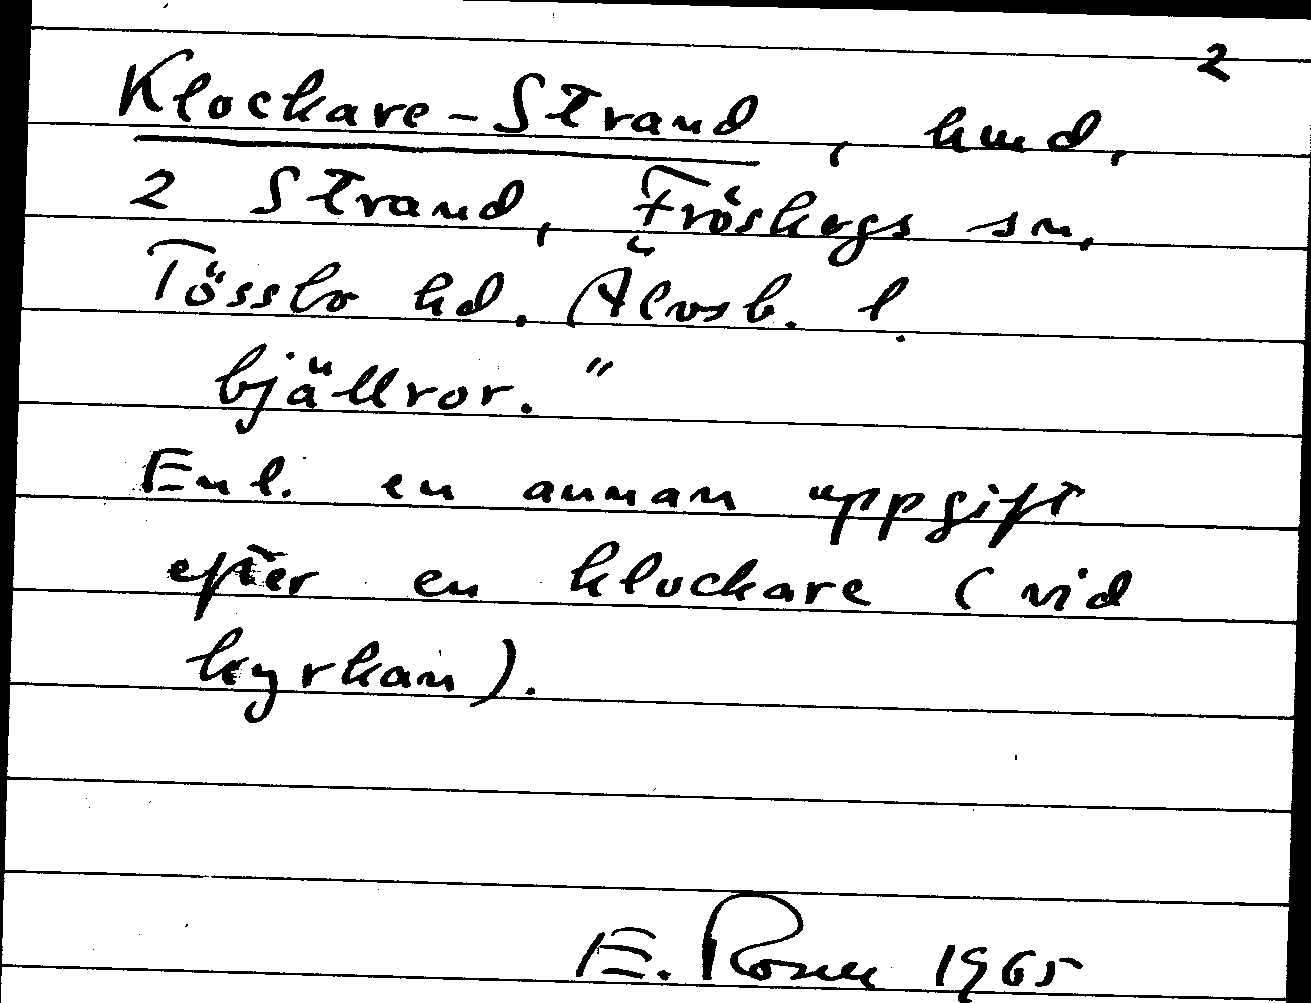 2
Klockare-Strand, hmd,
2 Strand, Fröskogs sn,
Tössbo hd. Älvsb. l.
bjällror."
Enl. en annan uppgift
efter en klockare (vid
kyrkan).
E. Rosen 1965